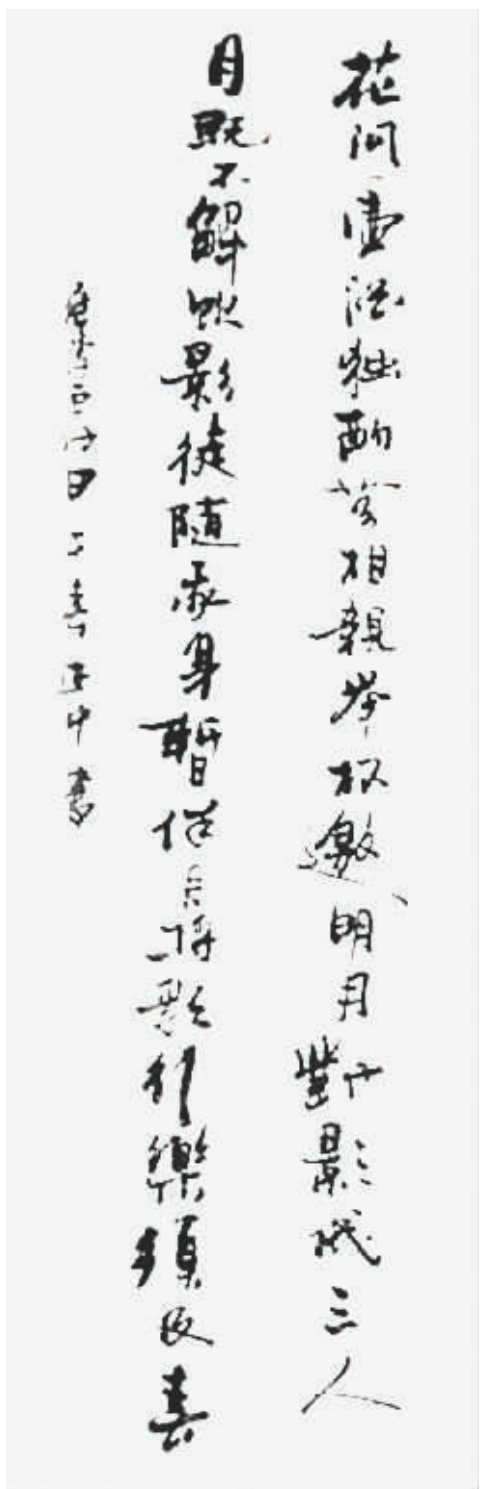 花间一壺酒独酌無相親举杯邀明月對影成三人
月既不解飲影徒隨我身暫伴月將影行樂須及春
唐李白诗 書